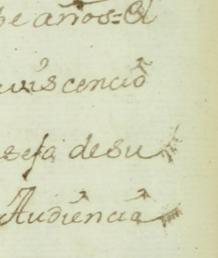 de años = El
uviscencio
sefa desu
Audiencia